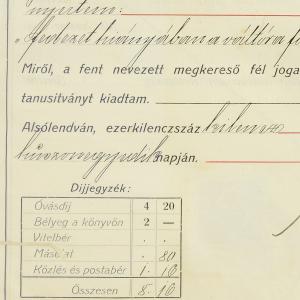 nyertem:
„fedezet hiányában a váltóra
Miről, a fent nevezett megkereső fél joga
tanusitványt kiadtam.
Alsólendván, ezerkilenczszáz kilencz
huszonnegyedik napján.
Díjjegyzék:
Óvásdíj 4 20
Bélyeg a könyvön 2 —
Vitelbér . .
Másolat . 80
Közlés és postabér 1. 10
Összesen 8. 10